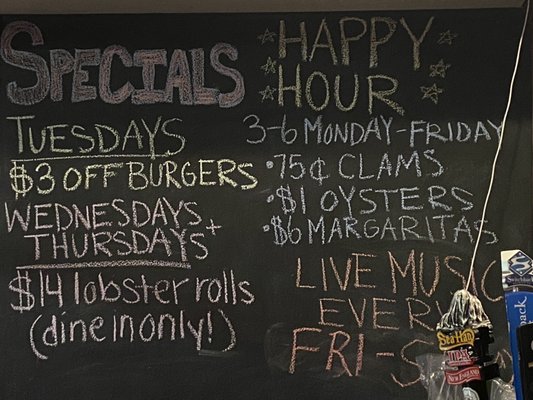 SPECIALS
TUESDAYS
$3 OFF BURGERS
WEDNESDAYS +
THURSDAYS
$14 lobster rolls
(dine in only!)
HAPPY
HOUR
3-6 MONDAY-FRIDAY
• 75¢ CLAMS
• $1 OYSTERS
• $6 MARGARITAS
LIVE MUSIC
EVERY
FRI-
Sea Hag
IPA
NEW ENGLAND